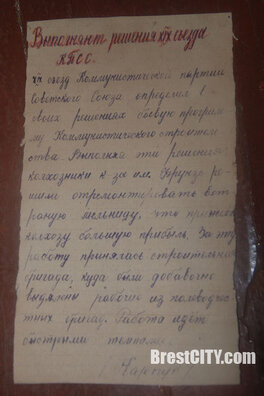 Выполняют решения XIX съезда
КПСС.
XIX съезд Коммунистической партии
Советского Союза определил в
своих решениях боевую програм-
му Коммунистического строитель-
ства. Выполняя эти решения
колхозники к-за им. Фрунзе ре-
шили отремонтировать вет-
ряную мельницу, что принесет
колхозу большую прибыль. За эту
работу принялась строительная
бригада, куда были добавочно
выделены рабочие из полеводчес-
ких бригад. Работа идет
быстрыми темпами.
Карпук
BrestCITY.com